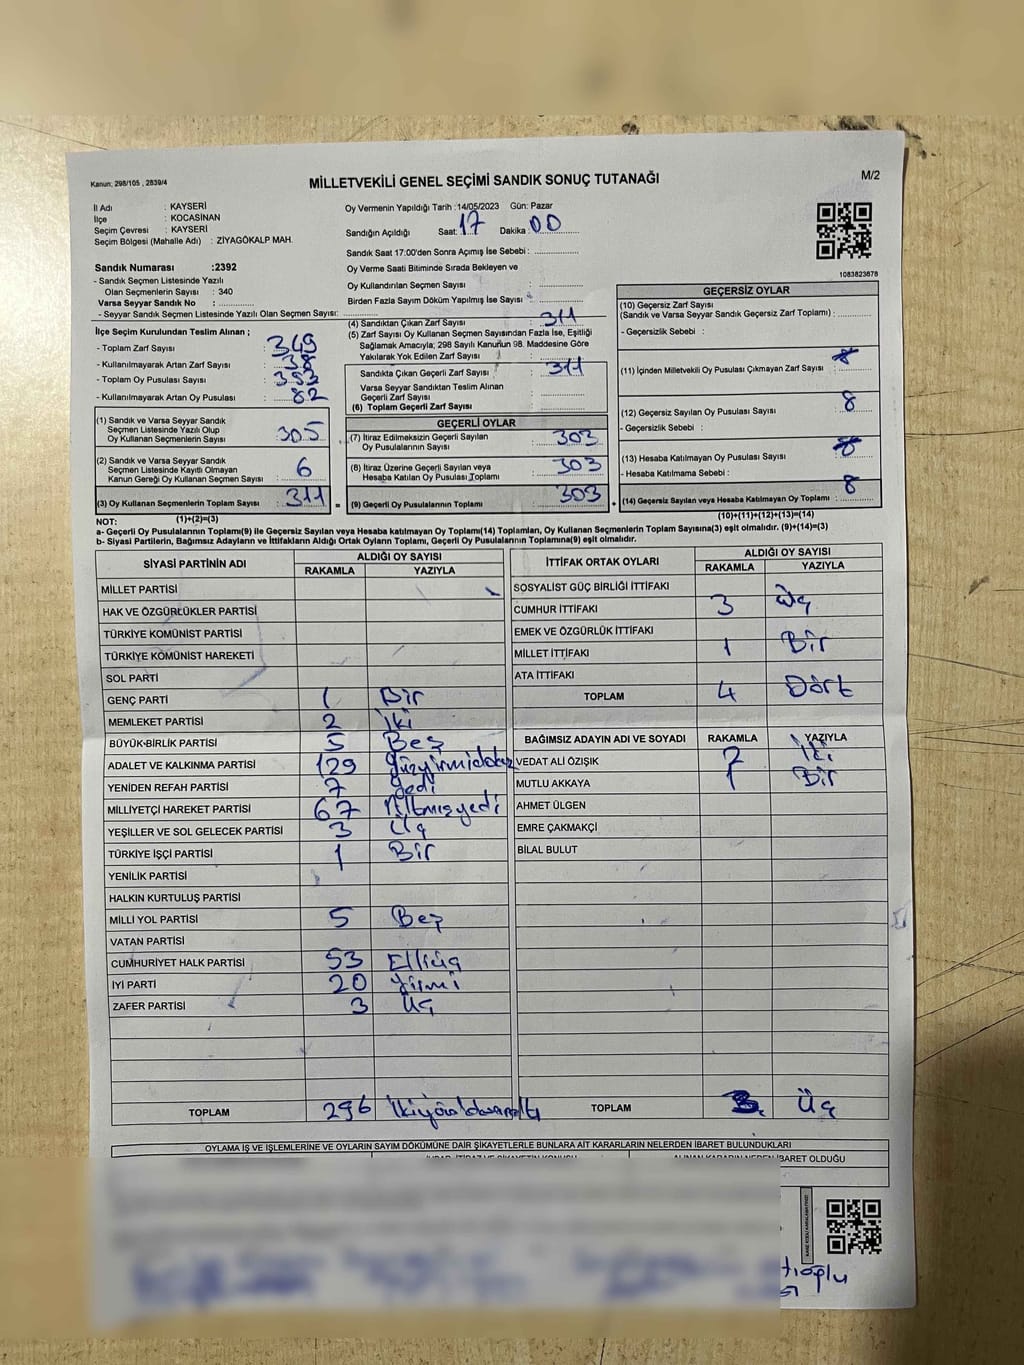 Kanun; 298/105 , 2839/4
MİLLETVEKİLİ GENEL SEÇİMİ SANDIK SONUÇ TUTANAĞI
M/2
İl Adı : KAYSERİ
İlçe : KOCASİNAN
Seçim Çevresi : KAYSERİ
Seçim Bölgesi (Mahalle Adı) : ZİYAGÖKALP MAH.
Sandık Numarası :2392
- Sandık Seçmen Listesinde Yazılı
Olan Seçmenlerin Sayısı : 340
Varsa Seyyar Sandık No :
- Seyyar Sandık Seçmen Listesinde Yazılı Olan Seçmen Sayısı:
Oy Vermenin Yapıldığı Tarih :14/05/2023 Gün: Pazar
Sandığın Açıldığı Saat: 17 Dakika: 00
Sandık Saat 17:00'den Sonra Açımış İse Sebebi :
Oy Verme Saati Bitiminde Sırada Bekleyen ve
Oy Kullandırılan Seçmen Sayısı
Birden Fazla Sayım Döküm Yapılmış İse Sayısı :
1083823678
İlçe Seçim Kurulundan Teslim Alınan ;
- Toplam Zarf Sayısı : 349
- Kullanılmayarak Artan Zarf Sayısı : 38
- Toplam Oy Pusulası Sayısı : 393
- Kullanılmayarak Artan Oy Pusulası : 82
(1) Sandık ve Varsa Seyyar Sandık
Seçmen Listesinde Yazılı Olup
Oy Kullanan Seçmenlerin Sayısı : 305
(2) Sandık ve Varsa Seyyar Sandık
Seçmen Listesinde Kayıtlı Olmayan
Kanun Gereği Oy Kullanan Seçmen Sayısı : 6
(3) Oy Kullanan Seçmenlerin Toplam Sayısı : 311
(1)+(2)=(3)
(4) Sandıktan Çıkan Zarf Sayısı : 311
(5) Zarf Sayısı Oy Kullanan Seçmen Sayısından Fazla İse, Eşitliği
Sağlamak Amacıyla; 298 Sayılı Kanunun 98. Maddesine Göre
Yakılarak Yok Edilen Zarf Sayısı :
Sandıkta Çıkan Geçerli Zarf Sayısı : 311
Varsa Seyyar Sandıktan Teslim Alınan
Geçerli Zarf Sayısı :
(6) Toplam Geçerli Zarf Sayısı :
GEÇERLİ OYLAR
(7) İtiraz Edilmeksizin Geçerli Sayılan
Oy Pusulalarının Sayısı : 303
(8) İtiraz Üzerine Geçerli Sayılan veya
Hesaba Katılan Oy Pusulası Toplamı : 303
(9) Geçerli Oy Pusulalarının Toplamı : 303
GEÇERSİZ OYLAR
(10) Geçersiz Zarf Sayısı
(Sandık ve Varsa Seyyar Sandık Geçersiz Zarf Toplamı) :
- Geçersizlik Sebebi :
(11) İçinden Milletvekili Oy Pusulası Çıkmayan Zarf Sayısı :
(12) Geçersiz Sayılan Oy Pusulası Sayısı : 8
- Geçersizlik Sebebi :
(13) Hesaba Katılmayan Oy Pusulası Sayısı :
- Hesaba Katılmama Sebebi :
(14) Geçersiz Sayılan veya Hesaba Katılmayan Oy Toplamı : 8
(10)+(11)+(12)+(13)=(14)
NOT:
a- Geçerli Oy Pusulalarının Toplamı(9) ile Geçersiz Sayılan veya Hesaba katılmayan Oy Toplamı(14) Toplamları, Oy Kullanan Seçmenlerin Toplam Sayısına(3) eşit olmalıdır. (9)+(14)=(3)
b- Siyasi Partilerin, Bağımsız Adayların ve İttifakların Aldığı Ortak Oyların Toplamı, Geçerli Oy Pusulalarının Toplamına(9) eşit olmalıdır.
SİYASİ PARTİNİN ADI ALDIĞI OY SAYISI
RAKAMLA YAZIYLA
MİLLET PARTİSİ
HAK VE ÖZGÜRLÜKLER PARTİSİ
TÜRKİYE KOMÜNİST PARTİSİ
TÜRKİYE KOMÜNİST HAREKETİ
SOL PARTİ
GENÇ PARTİ 1 Bir
MEMLEKET PARTİSİ 2 İki
BÜYÜK-BİRLİK PARTİSİ 5 Beş
ADALET VE KALKINMA PARTİSİ 129 Yüzyirmidokuz
YENİDEN REFAH PARTİSİ 7 Yedi
MİLLİYETÇİ HAREKET PARTİSİ 67 Altmışyedi
YEŞİLLER VE SOL GELECEK PARTİSİ 3 Üç
TÜRKİYE İŞÇİ PARTİSİ 1 Bir
YENİLİK PARTİSİ
HALKIN KURTULUŞ PARTİSİ
MİLLİ YOL PARTİSİ 5 Beş
VATAN PARTİSİ
CUMHURİYET HALK PARTİSİ 53 Elliüç
İYİ PARTİ 20 Yirmi
ZAFER PARTİSİ 3 Üç
TOPLAM 296 İkiyüzdoksanaltı
İTTİFAK ORTAK OYLARI ALDIĞI OY SAYISI
RAKAMLA YAZIYLA
SOSYALİST GÜÇ BİRLİĞİ İTTİFAKI
CUMHUR İTTİFAKI 3 Üç
EMEK VE ÖZGÜRLÜK İTTİFAKI
MİLLET İTTİFAKI 1 Bir
ATA İTTİFAKI
TOPLAM 4 Dört
BAĞIMSIZ ADAYIN ADI VE SOYADI RAKAMLA YAZIYLA
VEDAT ALİ ÖZIŞIK 2 İki
MUTLU AKKAYA 1 Bir
AHMET ÜLGEN
EMRE ÇAKMAKÇİ
BİLAL BULUT
TOPLAM 3 Üç
OYLAMA İŞ VE İŞLEMLERİNE VE OYLARIN SAYIM DÖKÜMÜNE DAİR ŞİKAYETLERLE BUNLARA AİT KARARLARIN NELERDEN İBARET BULUNDUKLARI
ALINAN KARARIN NEDEN İBARET OLDUĞU